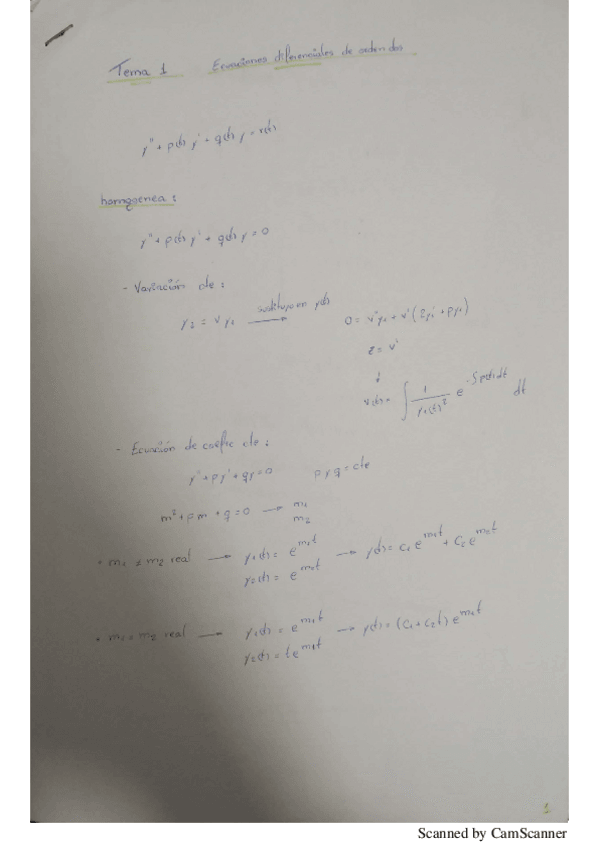 Tema 1 Ecuaciones diferenciales de orden dos
y'' + p(t) y' + q(t) y = r(t)
homogenea:
y'' + p(t) y' + q(t) y = 0
- Variación cte:
y₂ = v y₁ → sustituyo en y(t) 0 = v''y₁ + v'(2y₁' + py₁)
z = v'
↓
v(t) = ∫ 1/y₁(t)² e^(-∫p(t)dt) dt
- Ecuación de coefic cte:
y'' + py' + qy = 0 p y q = cte
m² + pm + q = 0 → m₁
m₂
• m₁ ≠ m₂ real → y₁(t) = e^(m₁t) → y(t) = c₁e^(m₁t) + c₂e^(m₂t)
y₂(t) = e^(m₂t)
• m₁ = m₂ real → y₁(t) = e^(m₁t) → y(t) = (c₁ + c₂t) e^(m₁t)
y₂(t) = te^(m₁t)
1
Scanned by CamScanner